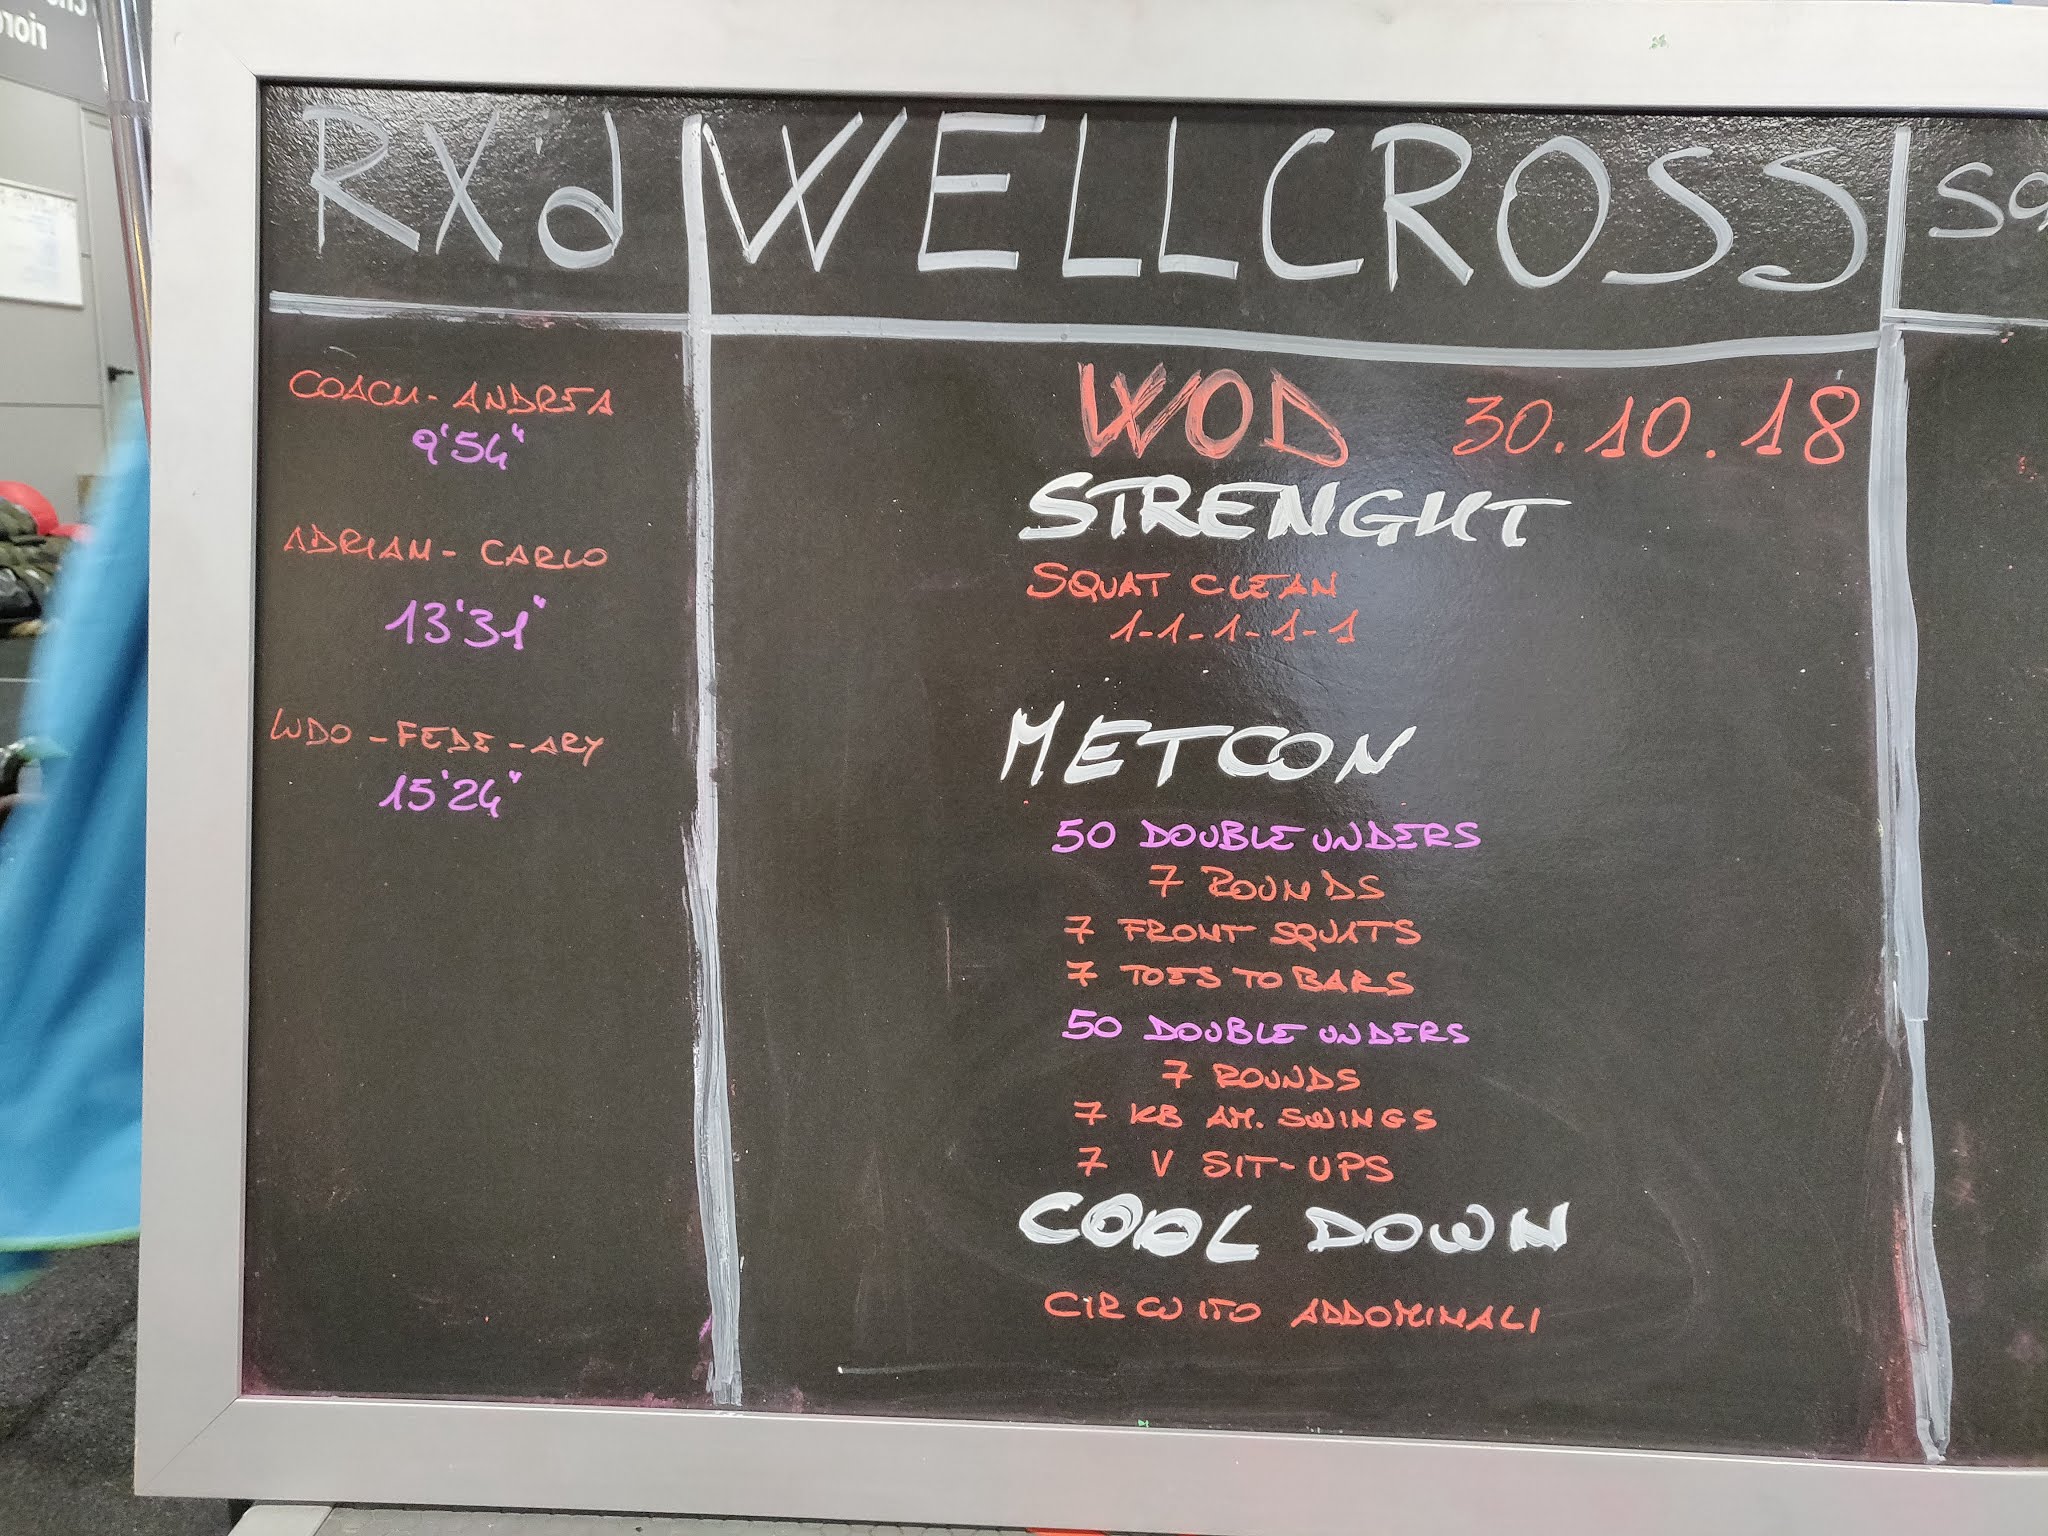 RX'd
COACH-ANDREA
9'54"
ADRIAN-CARLO
13'31"
LUDO-FEDE-ARY
15'24"
WELLCROSS
WOD 30.10.18
STRENGHT
SQUAT CLEAN
1-1-1-1-1
METCON
50 DOUBLE UNDERS
7 ROUNDS
7 FRONT SQUATS
7 TOES TO BARS
50 DOUBLE UNDERS
7 ROUNDS
7 KB AM. SWINGS
7 V SIT-UPS
COOL DOWN
CIRCUITO ADDOMINALI